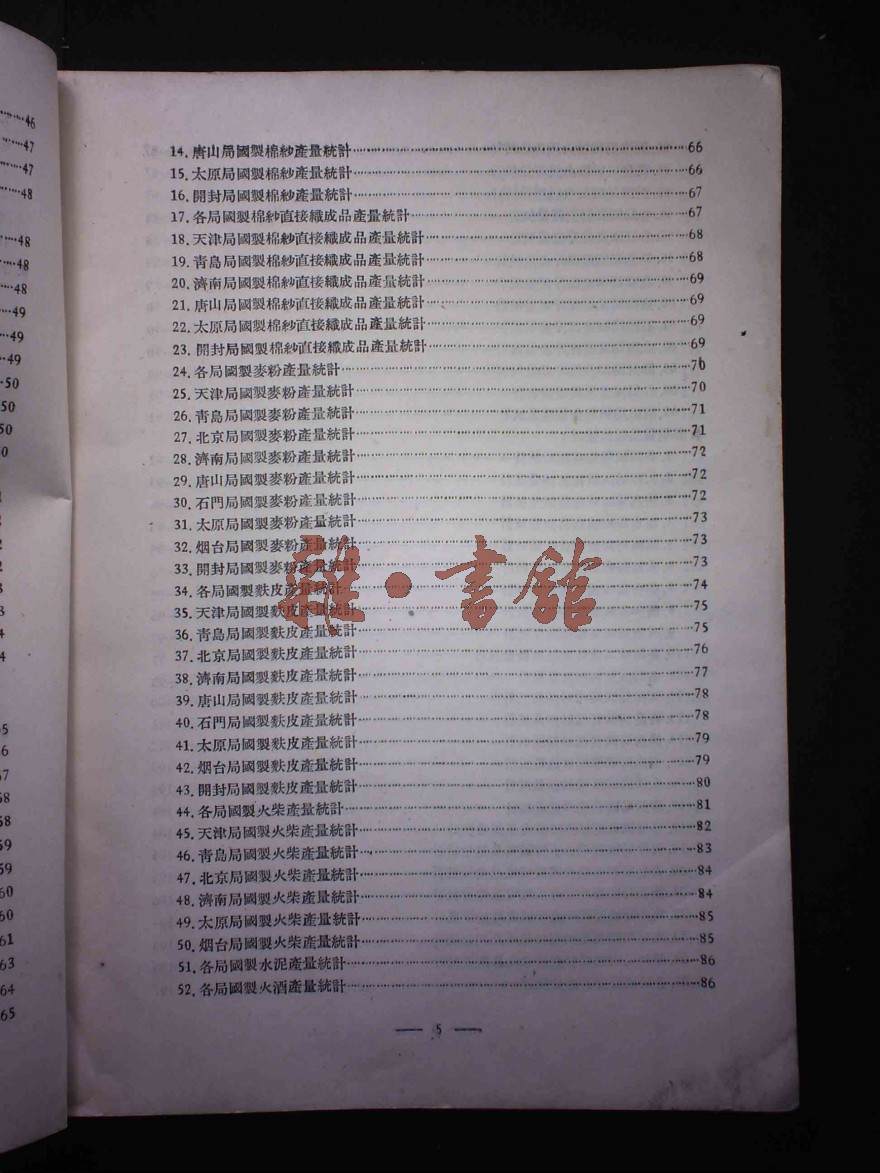 14. 唐山局國製棉紗產量統計……66
15. 太原局國製棉紗產量統計……66
16. 開封局國製棉紗產量統計……67
17. 各局國製棉紗直接織成品產量統計……67
18. 天津局國製棉紗直接織成品產量統計……68
19. 青島局國製棉紗直接織成品產量統計……68
20. 濟南局國製棉紗直接織成品產量統計……69
21. 唐山局國製棉紗直接織成品產量統計……69
22. 太原局國製棉紗直接織成品產量統計……69
23. 開封局國製棉紗直接織成品產量統計……69
24. 各局國製麥粉產量統計……70
25. 天津局國製麥粉產量統計……70
26. 青島局國製麥粉產量統計……71
27. 北京局國製麥粉產量統計……71
28. 濟南局國製麥粉產量統計……72
29. 唐山局國製麥粉產量統計……72
30. 石門局國製麥粉產量統計……72
31. 太原局國製麥粉產量統計……73
32. 烟台局國製麥粉產量統計……73
33. 開封局國製麥粉產量統計……73
34. 各局國製麩皮產量統計……74
35. 天津局國製麩皮產量統計……75
36. 青島局國製麩皮產量統計……75
37. 北京局國製麩皮產量統計……76
38. 濟南局國製麩皮產量統計……77
39. 唐山局國製麩皮產量統計……78
40. 石門局國製麩皮產量統計……78
41. 太原局國製麩皮產量統計……79
42. 烟台局國製麩皮產量統計……79
43. 開封局國製麩皮產量統計……80
44. 各局國製火柴產量統計……81
45. 天津局國製火柴產量統計……82
46. 青島局國製火柴產量統計……83
47. 北京局國製火柴產量統計……84
48. 濟南局國製火柴產量統計……84
49. 太原局國製火柴產量統計……85
50. 烟台局國製火柴產量統計……85
51. 各局國製水泥產量統計……86
52. 各局國製火酒產量統計……86
— 5 —
雜·書館